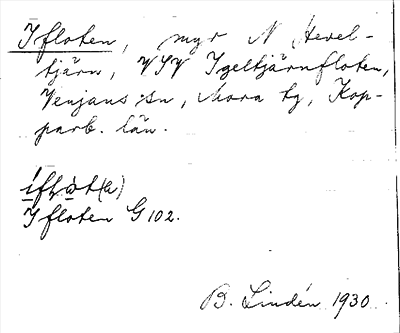 I floten, myr N Hevel-
tjärn, VSV Igeltjärnfloten,
Venjans sn, Mora tg, Kop-
parb. län.
I floten G 102.
B. Lindén 1930.